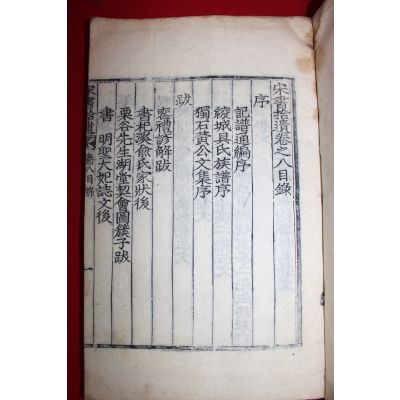 宋書拾遺卷之八目錄
序
記譜通編序
綾城具氏族譜序
獨石黃公文集序
跋
喪禮諺解跋
書杞溪俞氏家狀後
栗谷先生湖堂契會圖簇子跋
書 明聖大妃誌文後
宋書拾遺 卷八目錄 一